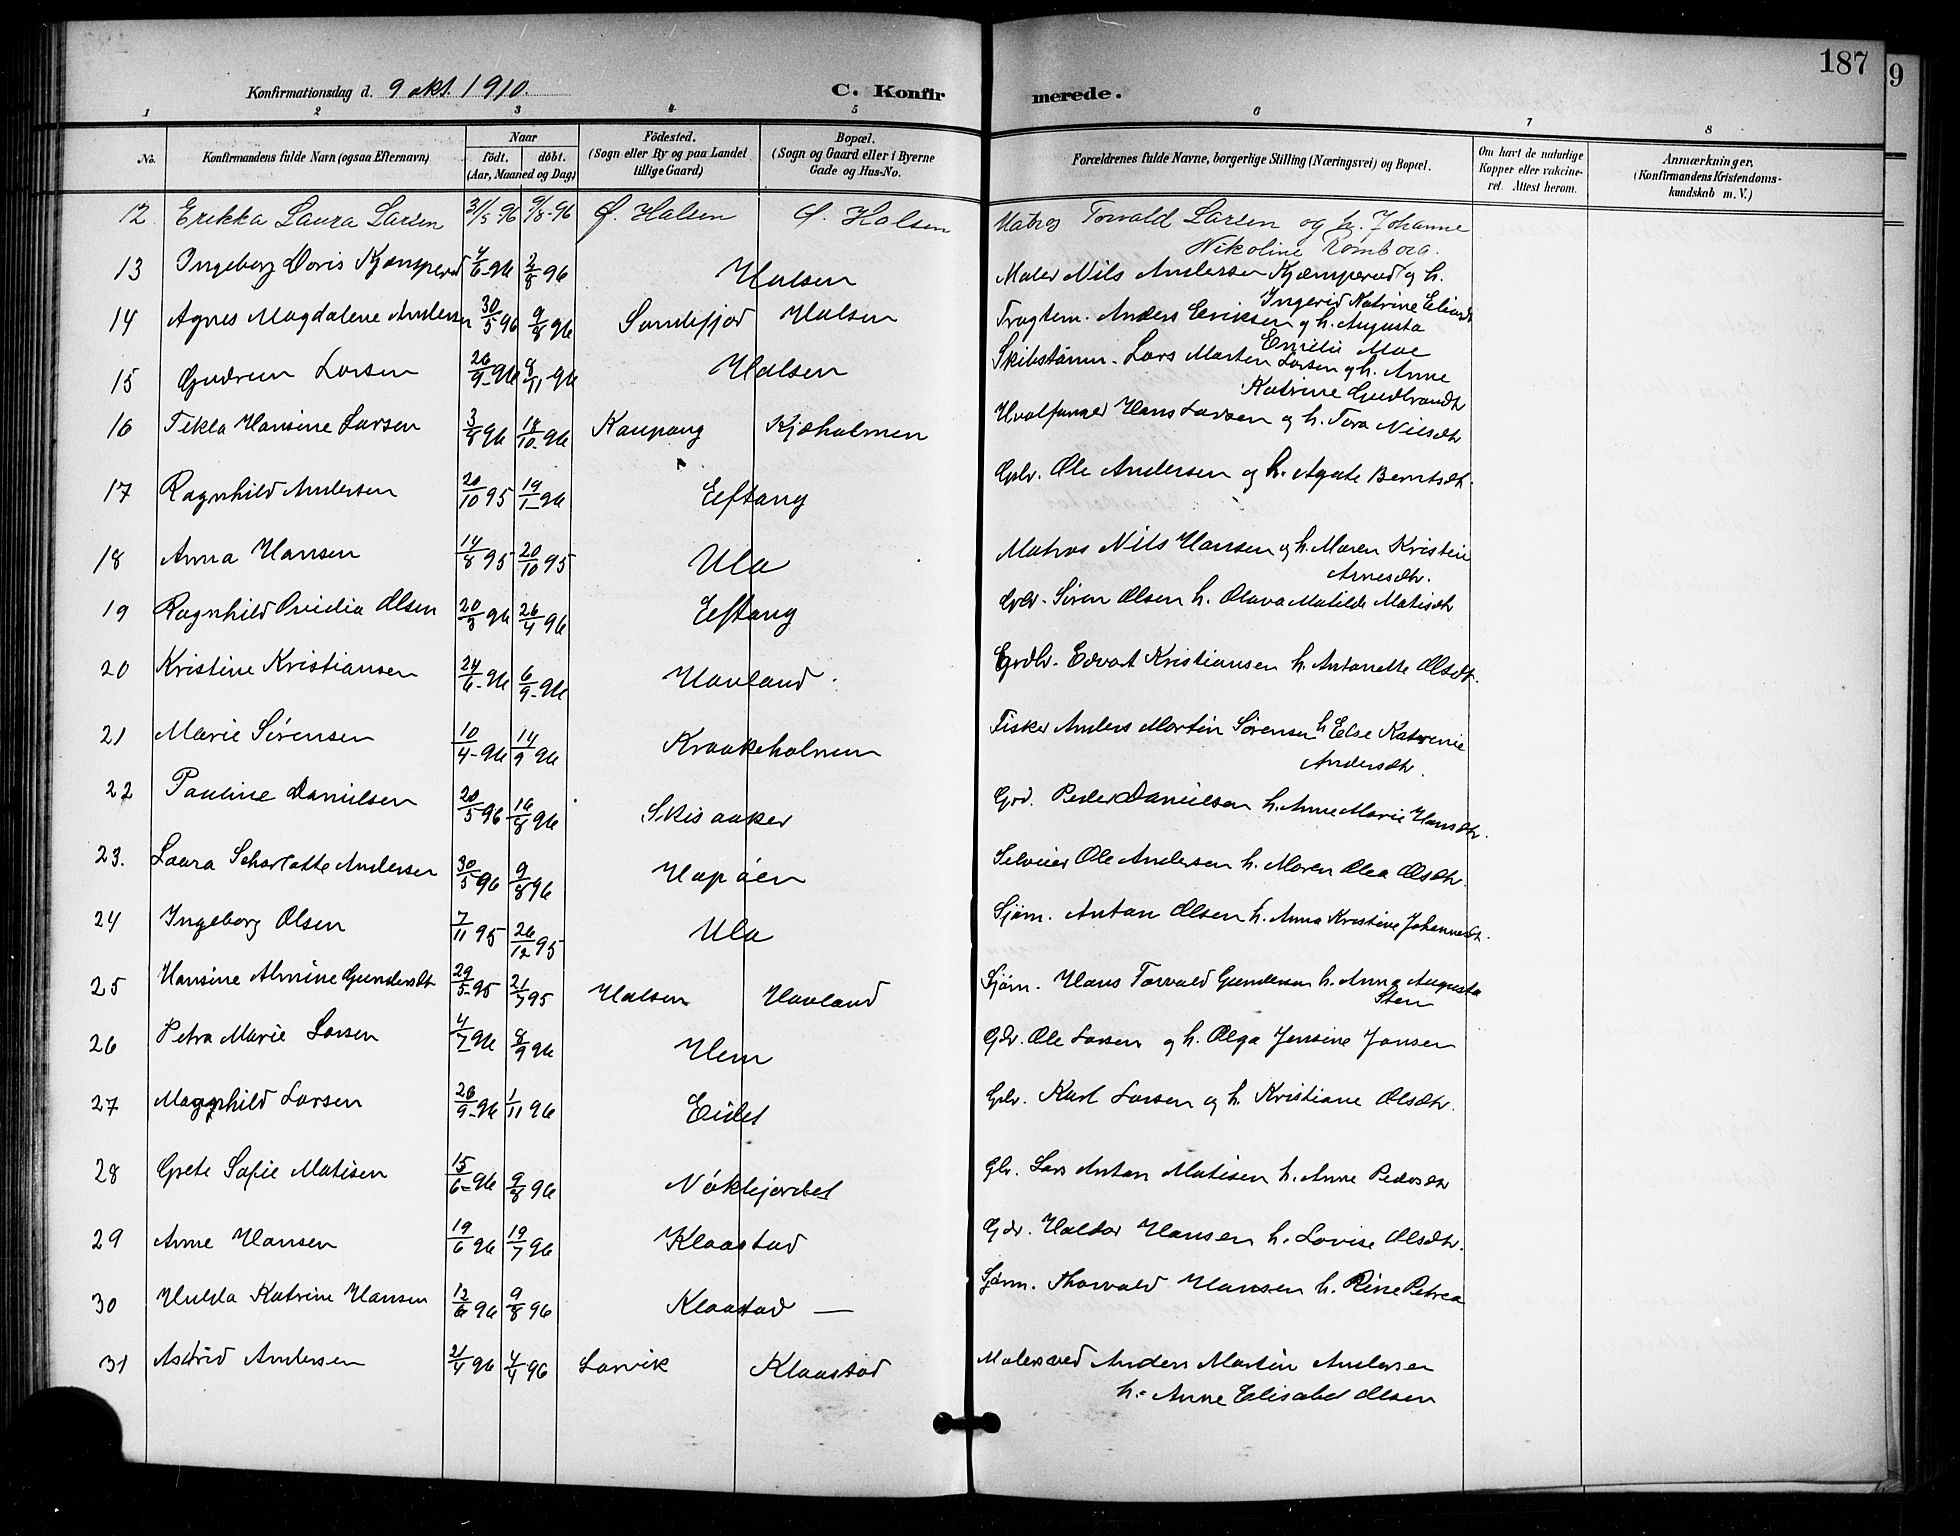 187
9
Konfirmationsdag d. 9 okt. 1910.
C. Konfirmerede.
1 2 3 4 5 6 7 8
No.
Konfirmandens fulde Navn (ogsaa Efternavn)
Naar
födt. döbt.
(Aar, Maaned og Dag)
Födested.
(Sogn eller By og paa Landet
tillige Gaard)
Bopæl.
(Sogn og Gaard eller i Byerne
Gade og Hus-No.
Forældrenes fulde Navne, borgerlige Stilling (Næringsvei) og Bopæl.
Om havt de naturlige
Kopper eller vakcine-
ret. Attest herom.
Anmærkninger.
(Konfirmandens Kristendoms-
kundskab m. V.)
12. Erikka Laura Larsen 31/5-96 9/8-96 Ø. Halsen Ø. Halsen Matros Torvald Larsen og h. Johanne
Nikoline Romborg.
13 Ingeborg Doris Kjæmperud 4/6-96 2/8 96 Halsen Maler Nils Andersen Kjæmperud og h.
Ingerid Natrine
14 Agnes Magdalene Andersen 30/5 96 9/8 96 Sandefjod Halsen Anders Eriksen og h. Augusta
Emilie Moe
15 Gudrun Larsen 26/9-96 8/11-96 Halsen Skibstømm. Lars Marten Larsen og h. Anne
Katrine Gudbrandtr
16 Tekla Hansine Larsen 3/8 96 18/10-96 Kaupang Kjøholmen Hvalfanger Hans Larsen og h. Tora Nilsdtr
17 Ragnhild Andersen 20/10 95 19/1-96 Eeftang Gbr. Ole Andersen og h. Agate Berntsdtr.
18 Anna Hansen 14/8 95 20/10 95 Ula Matros Nils Hansen og h. Maren Kristine
Arnesdtr.
19 Ragnhild Ovidia Olsen 20/3 96 26/4 96 Eeftang Gbr. Søren Olsen h. Olava Matilde Matisdtr
20 Kristine Kristiansen 24/6-96 6/9-96 Havland. Grdbr. Edvart Kristiansen h. Antonette Olsdtr.
21 Marie Sørensen 10/4-96 14/9 96 Kraakeholmen Fisker Anders Martin Sørensen h Else Katrine
Andersdtr.
22 Pauline Danielsen 20/5 96 16/8 96 Skisaaker Grd. Peder Danielsen h. Anne Marie Hansdtr.
23. Laura Scharlotte Andersen 30/5 96 9/8 96 Hapøen Selveier Ole Andersen h. Maren Olea Olsdtr.
24 Ingeborg Olsen 7/11 95 26/12 95 Ula Sjøm. Anton Olsen h. Anna Kristine Johannesdtr.
25 Hansine Almine Gundersdtr 29/5-95 21/7 95 Halsen Havland Sjøm. Hans Torvald Gundersen h. Anna Augusta
Sten
26 Petra Marie Larsen 4/7-96 8/9 96 Hem Gdr. Ole Larsen og h. Olga Jensine Jansen
27 Magnhild Larsen 26/9-96 1/11 96 Eidet Gbr. Karl Larsen og h. Kristiane Olsdtr.
28 Grete Sofie Matisen 15/6-96 9/8 96 Nøklejordet Gbr. Lars Anton Matisen h. Anne Pedersdtr
29 Anne Hansen 19/6 96 19/7 96 Klaastad Gdr. Haldor Hansen h. Lovise Olsdtr.
30 Hulda Katrine Hansen 12/6 96 9/8 96 Klaastad — Sjøm. Thorvald Hansen h. Rine Petrea
31 Astrid Andersen 21/4 96 4/4 96 Larvik Klaastad Malersved Anders Martin Andersen
h. Anne Elisabet Olsen